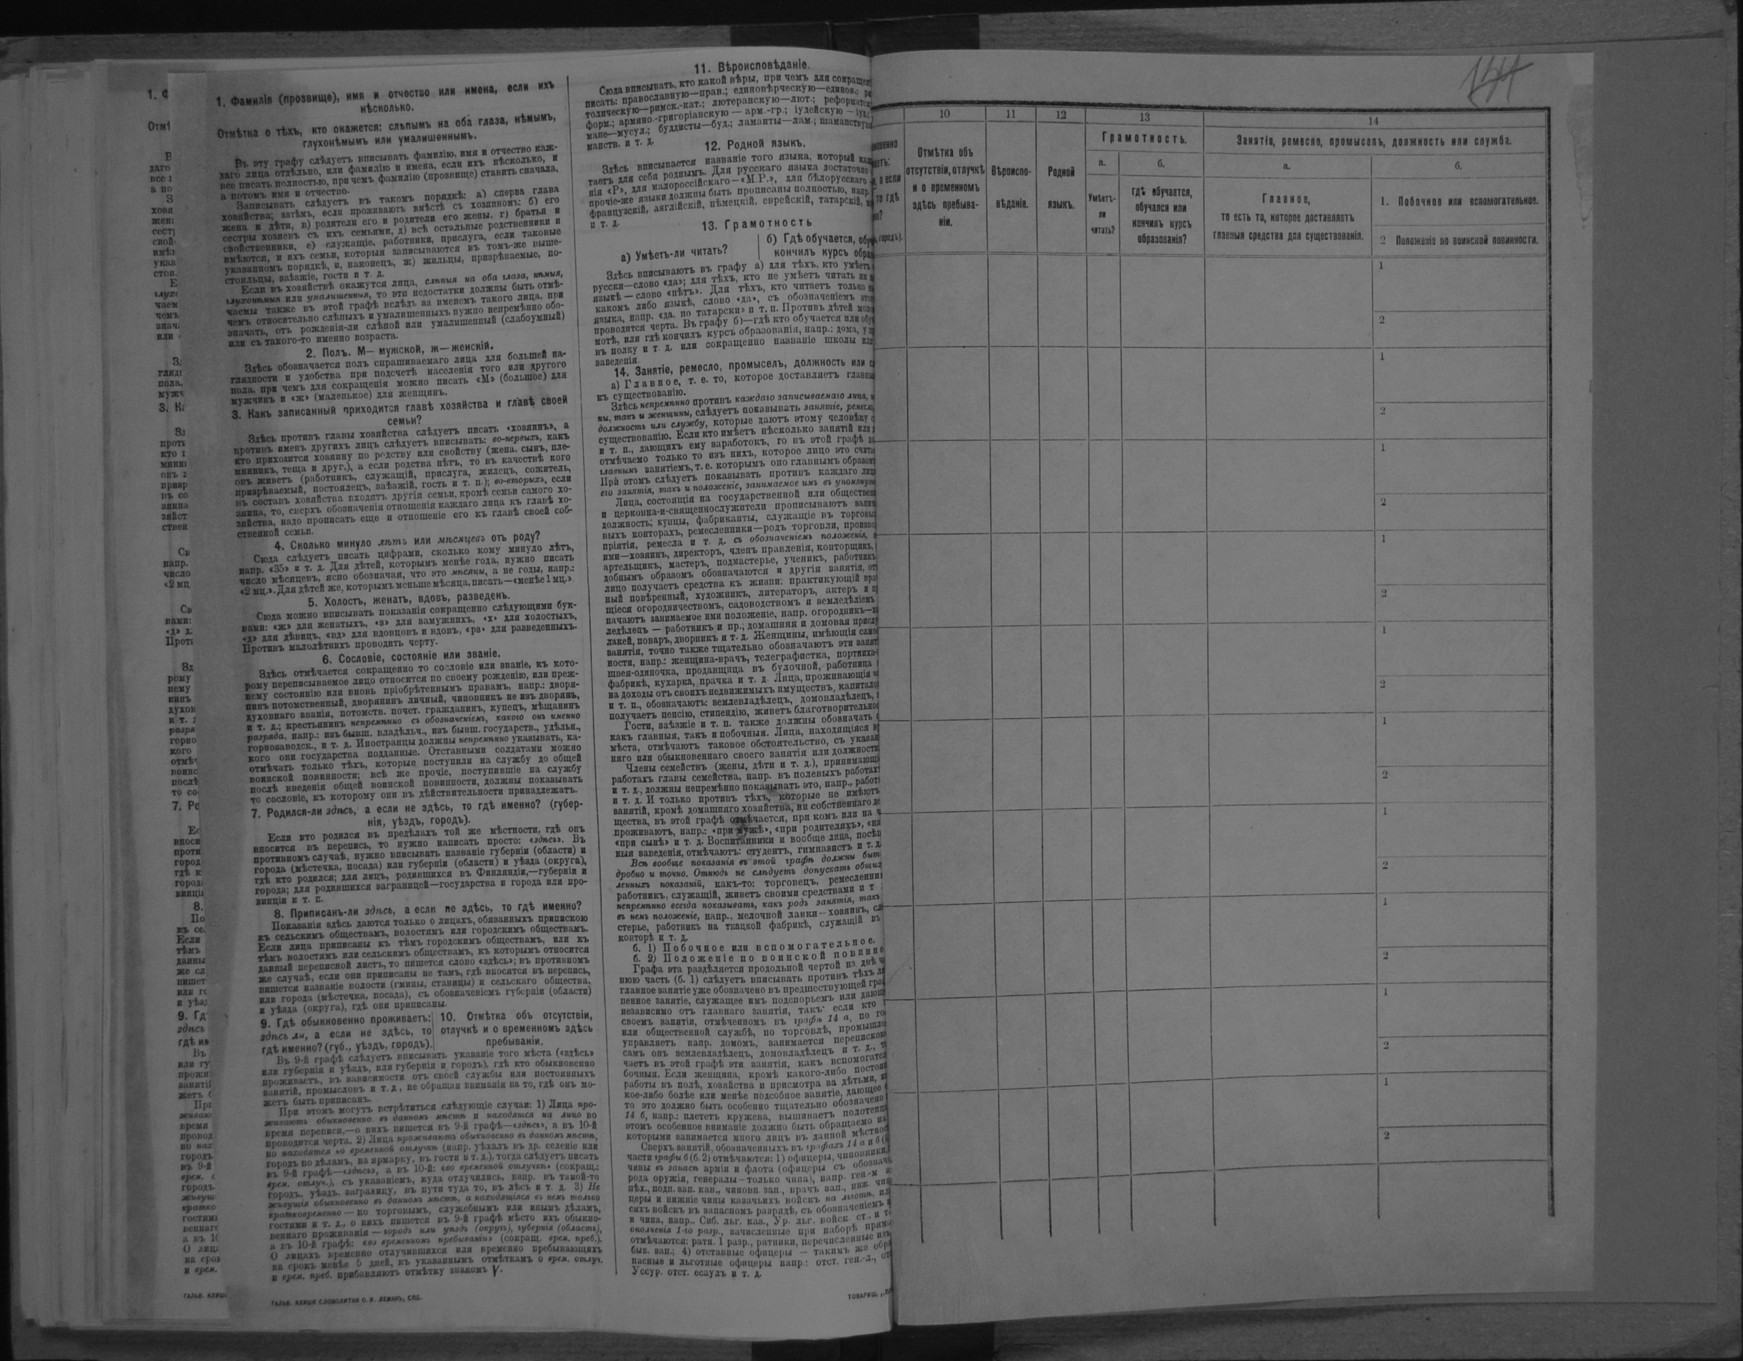 1. Фамилія (прозвище), имя и отчество или имена, если ихъ
нѣсколько.
Отмѣтка о тѣхъ, кто окажется: слѣпымъ на оба глаза, нѣмымъ,
глухонѣмымъ или умалишеннымъ.
Въ эту графу слѣдуетъ вписывать фамилію, имя и отчество каж-
даго лица отдѣльно, или фамилію и имена, если ихъ нѣсколько, и
все писать полностью, при чемъ фамилію (прозвище) ставить сначала,
а потомъ имя и отчество.
Записывать слѣдуетъ въ такомъ порядкѣ: а) сперва глава
хозяйства; затѣмъ, если проживаютъ вмѣстѣ съ хозяиномъ: б) его
жена и дѣти, в) родители его и родители его жены, г) братья и
сестры хозяевъ съ ихъ семьями, д) всѣ остальные родственники и
свойственники, е) служащіе, работники, прислуга, если таковые
имѣются, и ихъ семьи, которыя записываются въ томъ-же выше-
указанномъ порядкѣ, и, наконецъ, ж) жильцы, призрѣваемые, по-
стояльцы, заѣзжіе, гости и т. д.
Если въ хозяйствѣ окажутся лица, слѣпыя на оба глаза, нѣмыя,
глухонѣмыя или умалишенныя, то эти недостатки должны быть отмѣ-
чаемы также въ этой графѣ вслѣдъ за именемъ такого лица, при
чемъ относительно слѣпыхъ и умалишенныхъ нужно непремѣнно обо-
значать, отъ рожденія-ли слѣпой или умалишенный (слабоумный)
или съ такого-то именно возраста.
2. Полъ. М— мужской, ж—женскій.
Здѣсь обозначается полъ спрашиваемаго лица для большей на-
глядности и удобства при подсчетѣ населенія того или другого
пола, при чемъ для сокращенія можно писать «М» (большое) для
мужчинъ и «ж» (маленькое) для женщинъ.
3. Какъ записанный приходится главѣ хозяйства и главѣ своей
семьи?
Здѣсь противъ главы хозяйства слѣдуетъ писать «хозяинъ», а
противъ именъ другихъ лицъ слѣдуетъ вписывать: во-первыхъ, какъ
кто приходится хозяину по родству или свойству (жена, сынъ, пле-
мянникъ, теща и друг.), а если родства нѣтъ, то въ качествѣ кого
онъ живетъ (работникъ, служащій, прислуга, жилецъ, сожитель,
призрѣваемый, постоялецъ, заѣзжій, гость и т. п.); во-вторыхъ, если
въ составъ хозяйства входятъ другія семьи, кромѣ семьи самого хо-
зяина, то, сверхъ обозначенія отношенія каждаго лица къ главѣ хо-
зяйства, надо прописать еще и отношеніе его къ главѣ своей соб-
ственной семьи.
4. Сколько минуло лѣтъ или мѣсяцевъ отъ роду?
Сюда слѣдуетъ писать цифрами, сколько кому минуло лѣтъ,
напр. «35» и т. д. Для дѣтей, которымъ менѣе года, нужно писать
число мѣсяцевъ, ясно обозначая, что это мѣсяцы, а не годы, напр.:
«2 мц.». Для дѣтей же, которымъ меньше мѣсяца, писать—«менѣе 1 мц.»
5. Холостъ, женатъ, вдовъ, разведенъ.
Сюда можно вписывать показанія сокращенно слѣдующими бук-
вами: «ж» для женатыхъ, «з» для замужнихъ, «х» для холостыхъ,
«д» для дѣвицъ, «вд» для вдовцовъ и вдовъ, «рз» для разведенныхъ.
Противъ малолѣтнихъ проводить черту.
6. Сословіе, состояніе или званіе.
Здѣсь отмѣчается сокращенно то сословіе или званіе, къ кото-
рому переписываемое лицо относится по своему рожденію, или преж-
нему состоянію или вновь пріобрѣтеннымъ правамъ, напр.: дворя-
нинъ потомственный, дворянинъ личный, чиновникъ не изъ дворянъ,
духовнаго званія, потомств. почст. гражданинъ, купецъ, мѣщанинъ
и т. д.; крестьянинъ непремѣнно съ обозначеніемъ, какого онъ именно
разряда, напр.: изъ бывш. владѣльч., изъ бывш. государств., удѣльн.,
горнозаводск., и т. д. Иностранцы должны непремѣнно указывать, ка-
кого они государства подданные. Отставными солдатами можно
отмѣчать только тѣхъ, которые поступили на службу до общей
воинской повинности; всѣ же прочіе, поступившіе на службу
послѣ введенія общей воинской повинности, должны показывать
то сословіе, къ которому они въ дѣйствительности принадлежатъ.
7. Родился-ли здѣсь, а если не здѣсь, то гдѣ именно? (губер-
нія, уѣздъ, городъ).
Если кто родился въ предѣлахъ той же мѣстности, гдѣ онъ
вносится въ перепись, то нужно написать просто: «здѣсь». Въ
противномъ случаѣ, нужно вписывать названіе губерніи (области) и
города (мѣстечка, посада) или губерніи (области) и уѣзда (округа),
гдѣ кто родился; для лицъ, родившихся въ Финляндіи,—губерніи и
города; для родившихся заграницей—государства и города или про-
винціи и т. п.
8. Приписанъ-ли здѣсь, а если не здѣсь, то гдѣ именно?
Показанія здѣсь даются только о лицахъ, обязанныхъ припискою
къ сельскимъ обществамъ, волостямъ или городскимъ обществамъ.
Если лица приписаны къ тѣмъ городскимъ обществамъ, или къ
тѣмъ волостямъ или сельскимъ обществамъ, къ которымъ относится
данный переписной листъ, то пишется слово «здѣсь»; въ противномъ
же случаѣ, если они приписаны не тамъ, гдѣ вносятся въ перепись,
пишется названіе волости (гмины, станицы) и сельскаго общества,
или города (мѣстечка, посада), съ обозначеніемъ губерніи (области)
и уѣзда (округа), гдѣ они приписаны.
9. Гдѣ обыкновенно проживаетъ:
здѣсь ли, а если не здѣсь, то
гдѣ именно? (губ., уѣздъ, городъ).
10. Отмѣтка объ отсутствіи,
отлучкѣ и о временномъ здѣсь
пребываніи.
Въ 9-й графѣ слѣдуетъ вписывать указаніе того мѣста («здѣсь»
или губернія и уѣздъ, или губернія и городъ), гдѣ кто обыкновенно
проживаетъ, въ зависимости отъ своей службы или постоянныхъ
занятій, промысловъ и т. д., не обращая вниманія на то, гдѣ онъ мо-
жетъ быть приписанъ.
При этомъ могутъ встрѣтиться слѣдующіе случаи: 1) Лица про-
живаютъ обыкновенно въ данномъ мѣстѣ и находятся на лицо во
время переписи,—о нихъ пишется въ 9-й графѣ—«здѣсь», а въ 10-й
проводится черта. 2) Лица проживаютъ обыкновенно въ данномъ мѣстѣ,
но находятся во временной отлучкѣ (напр. уѣхалъ въ др. селеніе или
городъ по дѣламъ, на ярмарку, въ гости и т. д.), тогда слѣдуетъ писать
въ 9-й графѣ—«здѣсь», а въ 10-й: «во временной отлучкѣ» (сокращ.:
врем. отлуч.), съ указаніемъ, куда отлучились, напр. въ такой-то
городъ, уѣздъ, заграницу, въ пути туда то, въ лѣсъ и т. д. 3) Не
живущія обыкновенно въ данномъ мѣстѣ, а находящіяся въ немъ только
кратковременно — по торговымъ, служебнымъ или инымъ дѣламъ,
гостями и т. д., о нихъ пишется въ 9-й графѣ мѣсто ихъ обыкно-
веннаго проживанія — городъ или уѣздъ (округъ), губернія (область),
а въ 10-й графѣ: «во временномъ пребываніи» (сокращ. врем. преб.).
О лицахъ временно отлучившихся или временно пребывающихъ
на срокъ менѣе 5 дней, къ указаннымъ отмѣткамъ о врем. отлуч.
и врем. преб. прибавляютъ отмѣтку знакомъ V.
ГАЛЬВ. КЛИШЕ СЛОВОЛИТНИ О. И. ЛЕМАНЪ, СПБ.
11. Вѣроисповѣданіе.
Сюда вписывать, кто какой вѣры, при чемъ для сокращен
писать: православную—прав.; единовѣрческую—единов.;
толическую—римск.-кат.; лютеранскую—лют.; реформатск
форм.; армяно.-григоріанскую — арм.-гр.; іудейскую —
мане—мусул.; буддисты—буд.; ламаиты—лам.; шаманствую
манств. и т. д.
12. Родной языкъ.
Здѣсь вписывается названіе того языка, который каж
таетъ для себя роднымъ. Для русскаго языка достаточно
нія «Р», для малороссійскаго—«М.Р.», для бѣлорусскаго
прочіе-же языки должны быть прописаны полностью, напр.
французскій, англійскій, нѣмецкій, еврейскій, татарскій,
и т. д.
13. Грамотность
а) Умѣетъ-ли читать?
б) Гдѣ обучается, обу
кончилъ курсъ обра
Здѣсь вписываютъ въ графу а) для тѣхъ, кто умѣетъ
русски—слово «да»; для тѣхъ, кто не умѣетъ читать ни
языкѣ — слово «нѣтъ». Для тѣхъ, кто читаетъ только
какомъ либо языкѣ, слово «да», съ обозначеніемъ
языка, напр. «да, по татарски» и т. п. Противъ дѣтей
проводится черта. Въ графу б)—гдѣ кто обучается или
мотѣ, или гдѣ кончилъ курсъ образованія, напр.: дома,
въ полку и т. д. или сокращенно названіе школы
заведенія.
14. Занятіе, ремесло, промыселъ, должность или
а) Главное, т. е. то, которое доставляетъ главны
къ существованію.
Здѣсь непремѣнно противъ каждаго записываемаго лица,
ны, такъ и женщины, слѣдуетъ показывать занятіе, ремесло,
должность или службу, которые даютъ этому человѣку
существованію. Если кто имѣетъ нѣсколько занятій или
и т. п., дающихъ ему заработокъ, то въ этой графѣ
отмѣчаемо только то изъ нихъ, которое лицо это счита
главнымъ занятіемъ, т. е. которымъ оно главнымъ образомъ
При этомъ слѣдуетъ показывать противъ каждаго лица
его занятія, такъ и положеніе, занимаемое имъ въ упомянут
Лица, состоящія на государственной или обществен
и церковно-и-священнослужители прописываютъ
должность; купцы, фабриканты, служащіе въ торговы
выхъ конторахъ, ремесленники—родъ торговли,
пріятія, ремесла и т. д. съ обозначеніемъ положенія,
ими—хозяинъ, директоръ, членъ правленія, конторщикъ,
артельщикъ, мастеръ, подмастерье, ученикъ, работникъ
добнымъ образомъ обозначаются и другія занятія, от
лицо получаетъ средства къ жизни: практикующій вра
ный повѣренный, художникъ, литераторъ, актеръ и
щіеся огородничествомъ, садоводствомъ и земледѣліемъ
начаютъ занимаемое ими положеніе, напр. огородникъ—
ледѣлецъ — работникъ и пр.; домашняя и домовая прислу
лакей, поваръ, дворникъ и т. д. Женщины, имѣющія само
занятія, точно также тщательно обозначаютъ эти занят
ности, напр.: женщина-врачъ, телеграфистка, портниха-
швея-одиночка, продавщица въ булочной, работница
фабрикѣ, кухарка, прачка и т. д. Лица, проживающія
на доходы отъ своихъ недвижимыхъ имуществъ, капитало
и т. п., обозначаютъ: землевладѣлецъ, домовладѣлецъ,
получаетъ пенсію, стипендію, живетъ благотворительнос
Гости, заѣзжіе и т. п. также должны обозначать
какъ главныя, такъ и побочныя. Лица, находящіяся
мѣста, отмѣчаютъ таковое обстоятельство, съ указан
няго или обыкновеннаго своего занятія или должности
Члены семействъ (жены, дѣти и т. д.), принимающі
работахъ главы семейства, напр. въ полевыхъ работахъ
и т. д., должны непремѣнно показывать это, напр., работ
и т. д. И только противъ тѣхъ, которые не имѣютъ
занятій, кромѣ домашняго хозяйства, ни собственнаго
щества, въ этой графѣ отмѣчается, при комъ или на
проживаютъ, напр.: «при мужѣ», «при родителяхъ»,
«при сынѣ» и т. д. Воспитанники и вообще лица, посѣщ
ныя заведенія, отмѣчаютъ: студентъ, гимназистъ и т. д.
Всѣ вообще показанія въ этой графѣ должны быт
дробно и точно. Отнюдь не слѣдуетъ допускать общих
ленныхъ показаній, какъ-то: торговецъ, ремесленни
работникъ, служащій, живетъ своими средствами и т
непремѣнно всегда показывать, какъ родъ занятія, такъ
въ немъ положеніе, напр., мелочной лавки—хозяинъ,
стерье, работникъ на ткацкой фабрикѣ, служащій въ
конторѣ и т. д.
б. 1) Побочное или вспомогательное.
б. 2) Положеніе по воинской повинно
Графа эта раздѣляется продольной чертой на двѣ ч
нюю часть (б. 1) слѣдуетъ вписывать противъ тѣхъ
главное занятіе уже обозначено въ предшествующей граф
пенное занятіе, служащее имъ подспорьемъ или дающ
независимо отъ главнаго занятія, такъ: если кто
своемъ занятіи, отмѣченномъ въ графѣ 14 а, по го
или общественной службѣ, по торговлѣ, промышле
управляетъ напр. домомъ, занимается перепискою
самъ онъ землевладѣлецъ, домовладѣлецъ и т. д.,
чаетъ въ этой графѣ эти занятія, какъ вспомогател
бочныя. Если женщина, кромѣ какого-либо постоян
работы въ полѣ, хозяйства и присмотра за дѣтьми,
кое-либо болѣе или менѣе подсобное занятіе, дающее
то это должно быть особенно тщательно обозначено
14 б, напр.: плететъ кружева, вышиваетъ полотенца
этомъ особенное вниманіе должно быть обращаемо на
которыми занимается много лицъ въ данной мѣстнос
Сверхъ занятій, обозначенныхъ въ графахъ 14 а и б (
части графы б (б. 2) отмѣчаются: 1) офицеры, чиновники,
чины въ запасѣ арміи и флота (офицеры съ обознач
рода оружія, генералы—только чина), напр. ген.-м
пѣх., подп. зап. кав., чиновн. зап., врачъ зап., ниж. чин
церы и нижніе чины казачьихъ войскъ на льготѣ,
скихъ войскъ въ запасномъ разрядѣ, съ обозначеніемъ
и чина, напр., Сиб. льг. каз., Ур. льг. войск. ст., и т.
ополченія 1-го разр., зачисленные при наборѣ прям
отмѣчаются: ратн. 1 разр., ратники, перечисленные из
быв. зап.; 4) отставные офицеры — такимъ же обра
пасные и льготные офицеры напр.: отст. ген.-л., от
Уссур. отст. есаулъ и т. д.
ТОВАРИЩ.
10
11
12
13
14
Отмѣтка объ
отсутствіи, отлучкѣ
и о временномъ
здѣсь пребыва-
ніи.
Вѣроиспо-
вѣданіе.
Родной
языкъ.
Грамотность.
а.
б.
Умѣетъ-
ли
читать?
гдѣ обучается,
обучался или
кончилъ курсъ
образованія?
Занятіе, ремесло, промыселъ, должность или служба.
а.
б.
Главное,
то есть то, которое доставляетъ
главныя средства для существованія.
1. Побочное или вспомогательное.
2 Положеніе по воинской повинности.
1
2
1
2
1
2
1
2
1
2
1
2
1
2
1
2
1
2
1
2